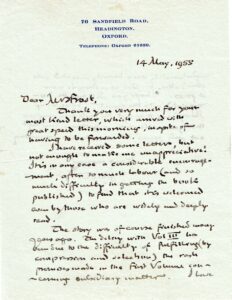 76 SANDFIELD ROAD,
HEADINGTON,
OXFORD.
TELEPHONE: OXFORD 61639.
14 May, 1958
Dear Mr Frost,
Thank you very much for your
most kind letter, which arrived with
great speed this morning, in spite of
having to be forwarded.
I have received some letters, but
not enough to make me unappreciative!
This in any case is considerable encourage-
ment, after so much labour (and so
much difficulty in getting the book
published) to find that it is welcomed
even by those who are widely and deeply
read.
The story was of course finished many
years ago. The delay with Vol III has
been due to the difficulty of fulfilling (by
compression and selection) the rash
promises made in the First Volume con-
cerning subsidiary matter. I have